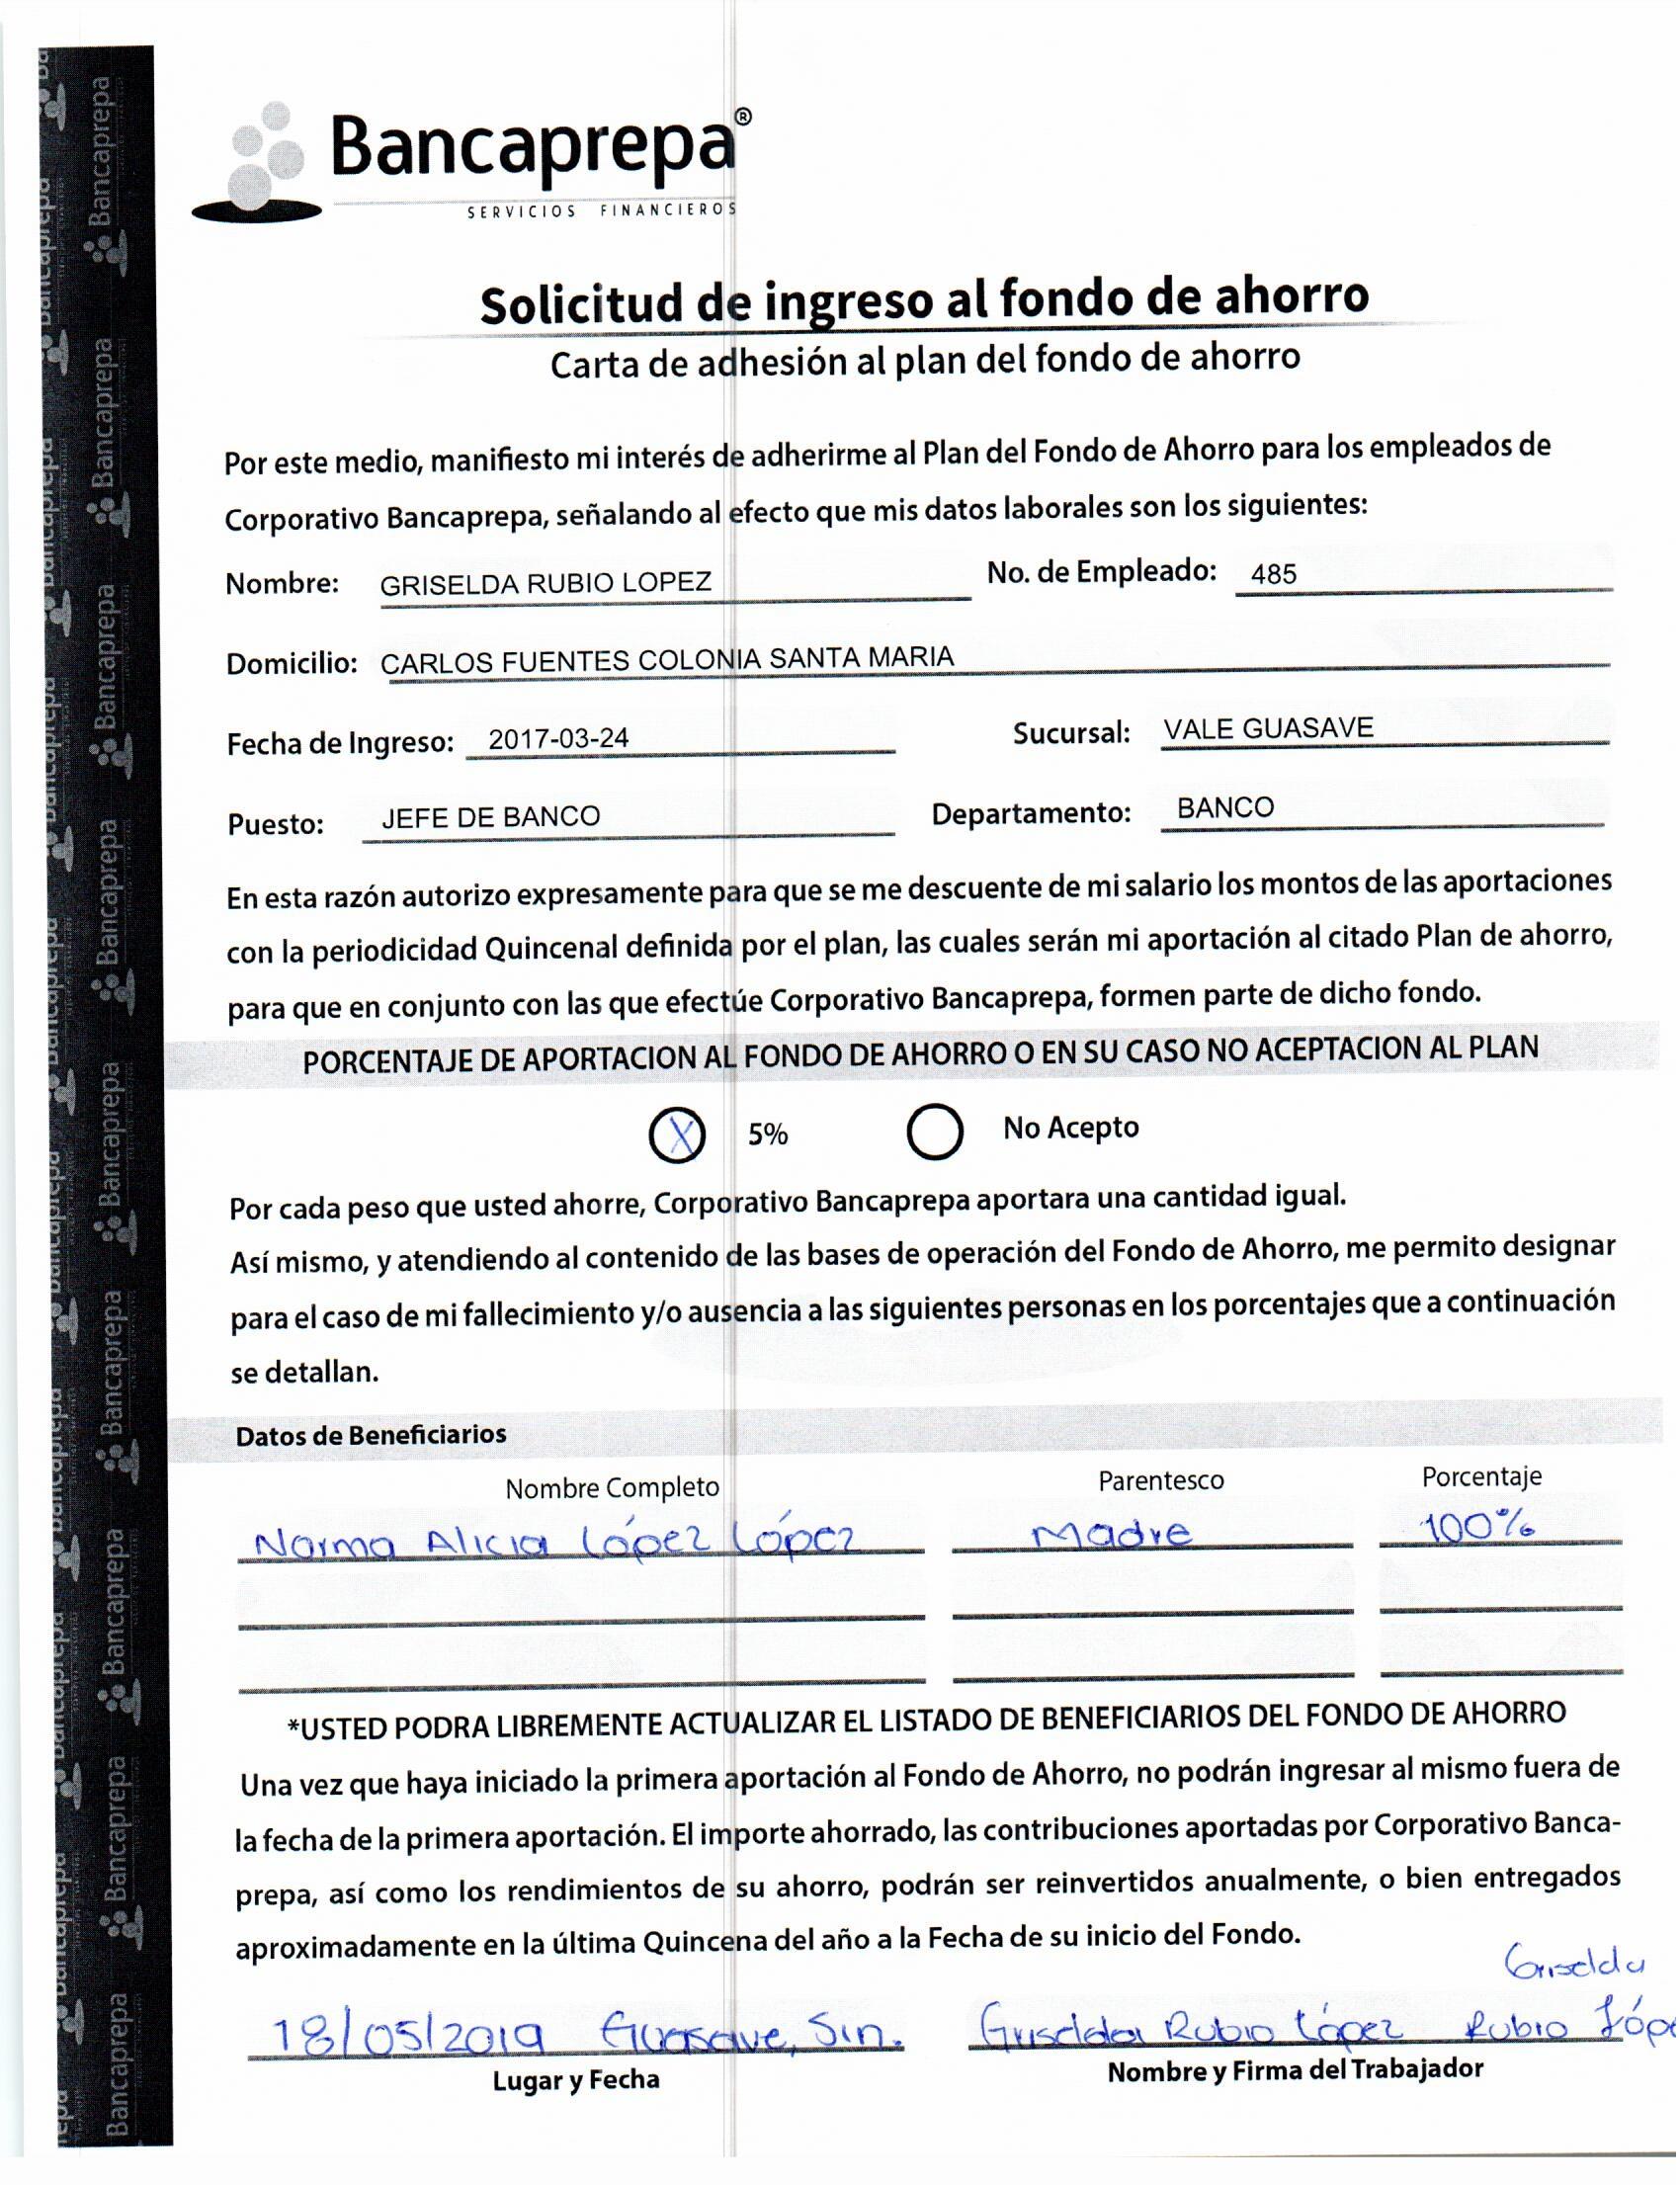 Bancaprepa®
SERVICIOS FINANCIEROS
Solicitud de ingreso al fondo de ahorro
Carta de adhesión al plan del fondo de ahorro
Por este medio, manifiesto mi interés de adherirme al Plan del Fondo de Ahorro para los empleados de
Corporativo Bancaprepa, señalando al efecto que mis datos laborales son los siguientes:
Nombre: GRISELDA RUBIO LOPEZ No. de Empleado: 485
Domicilio: CARLOS FUENTES COLONIA SANTA MARIA
Fecha de Ingreso: 2017-03-24 Sucursal: VALE GUASAVE
Puesto: JEFE DE BANCO Departamento: BANCO
En esta razón autorizo expresamente para que se me descuente de mi salario los montos de las aportaciones
con la periodicidad Quincenal definida por el plan, las cuales serán mi aportación al citado Plan de ahorro,
para que en conjunto con las que efectúe Corporativo Bancaprepa, formen parte de dicho fondo.
PORCENTAJE DE APORTACION AL FONDO DE AHORRO O EN SU CASO NO ACEPTACION AL PLAN
X 5% No Acepto
Por cada peso que usted ahorre, Corporativo Bancaprepa aportara una cantidad igual.
Así mismo, y atendiendo al contenido de las bases de operación del Fondo de Ahorro, me permito designar
para el caso de mi fallecimiento y/o ausencia a las siguientes personas en los porcentajes que a continuación
se detallan.
Datos de Beneficiarios
Nombre Completo Parentesco Porcentaje
Norma Alicia López López Madre 100%
*USTED PODRA LIBREMENTE ACTUALIZAR EL LISTADO DE BENEFICIARIOS DEL FONDO DE AHORRO
Una vez que haya iniciado la primera aportación al Fondo de Ahorro, no podrán ingresar al mismo fuera de
la fecha de la primera aportación. El importe ahorrado, las contribuciones aportadas por Corporativo Banca-
prepa, así como los rendimientos de su ahorro, podrán ser reinvertidos anualmente, o bien entregados
aproximadamente en la última Quincena del año a la Fecha de su inicio del Fondo.
Griselda
18/05/2019 Guasave, Sin. Griselda Rubio López Rubio Lópe
Lugar y Fecha Nombre y Firma del Trabajador